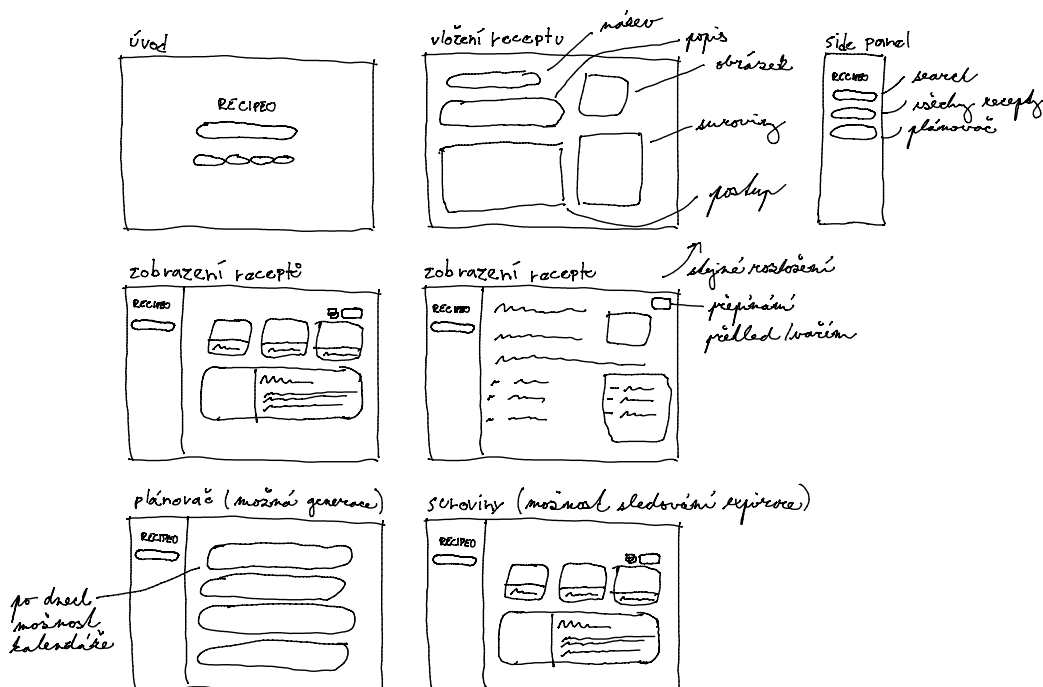 úvod
RECIPEO
vložení receptu
název
popis
obrázek
suroviny
postup
side panel
RECIPEO
search
všechy recepty
plánovač
zobrazení receptů
RECIPEO
zobrazení receptu
RECIPEO
stejné rozložení
přepínání
přehled/vaření
plánovač (možná generace)
RECIPEO
po dnech
možnost
kalendáře
suroviny (možnost sledování expirace)
RECIPEO